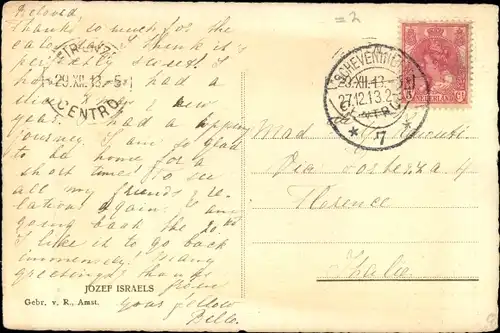 Beloved
Thanks so much for the
calendar I think it is
perfectly sweet. I
hope had a
new
year. I had a happy
journey. I am so glad
to be home for a
short time to see
all my friends & re-
lations again. I am
going back the 20th
I like it to go back
immensely! Many
greetings & thanks
from
your fellow
Bello.
JOZEF ISRAELS
Gebr. v. R., Amst.
FIRENZE
29.XII.13.-5
CENTRO
=2
SCHEVENINGEN
29.XII.13
27.12.13.2
* 7 *
NEDERLAND
5
Mad
Via
Florence
Italie